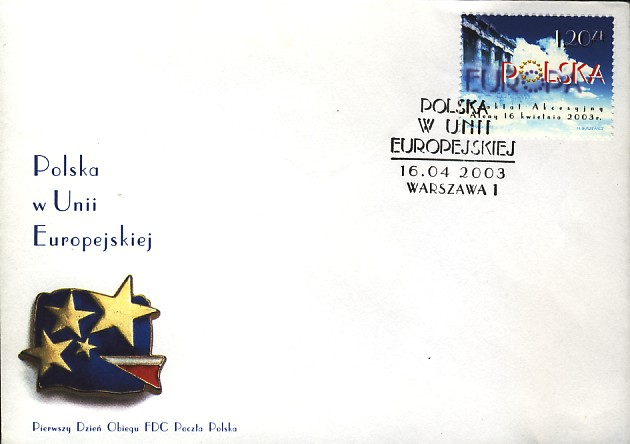 1.20 ZŁ
EUROPA
POLSKA
Traktat Akcesyjny
Ateny 16 kwietnia 2003r.
POLSKA
W UNII
EUROPEJSKIEJ
16.04 2003
WARSZAWA 1
Polska
w Unii
Europejskiej
Pierwszy Dzień Obiegu FDC Poczta Polska